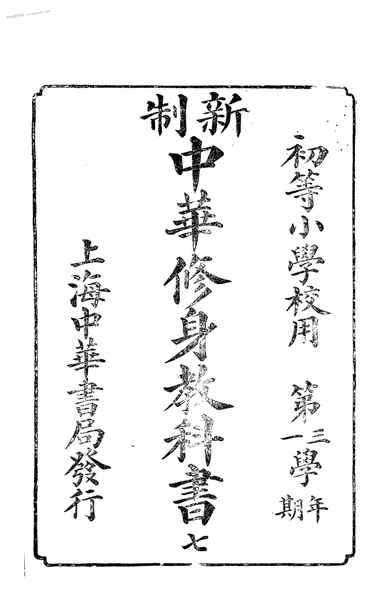 初等小學校用 第三學年 第一學期
新制
中華修身教科書七
上海中華書局發行